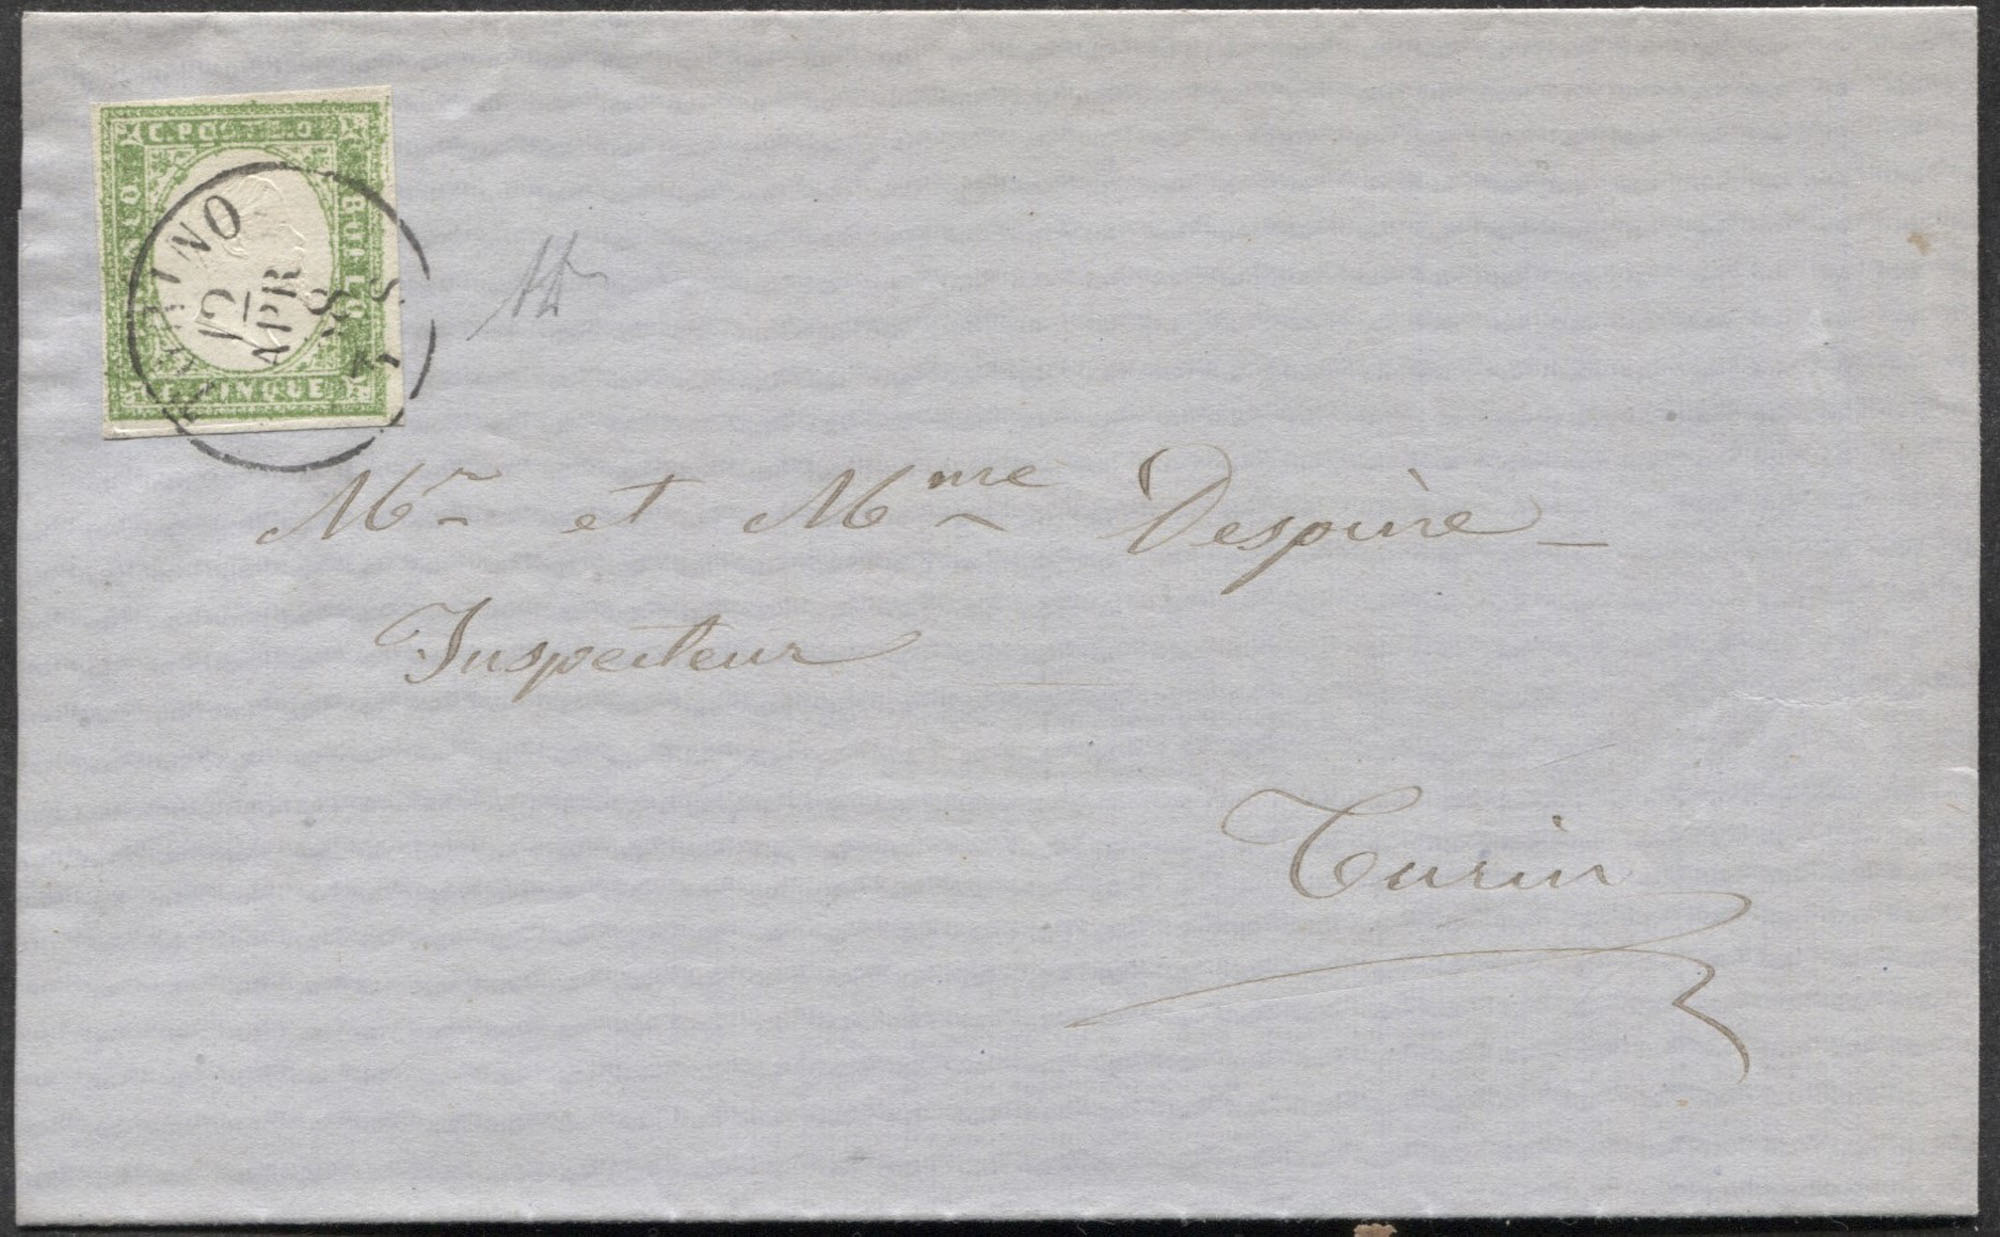 C. POSTE 0
BOLLO
C. CINQUE
TORINO
12
APR
58
Mr et Mme Despine
Inspecteur
Turin